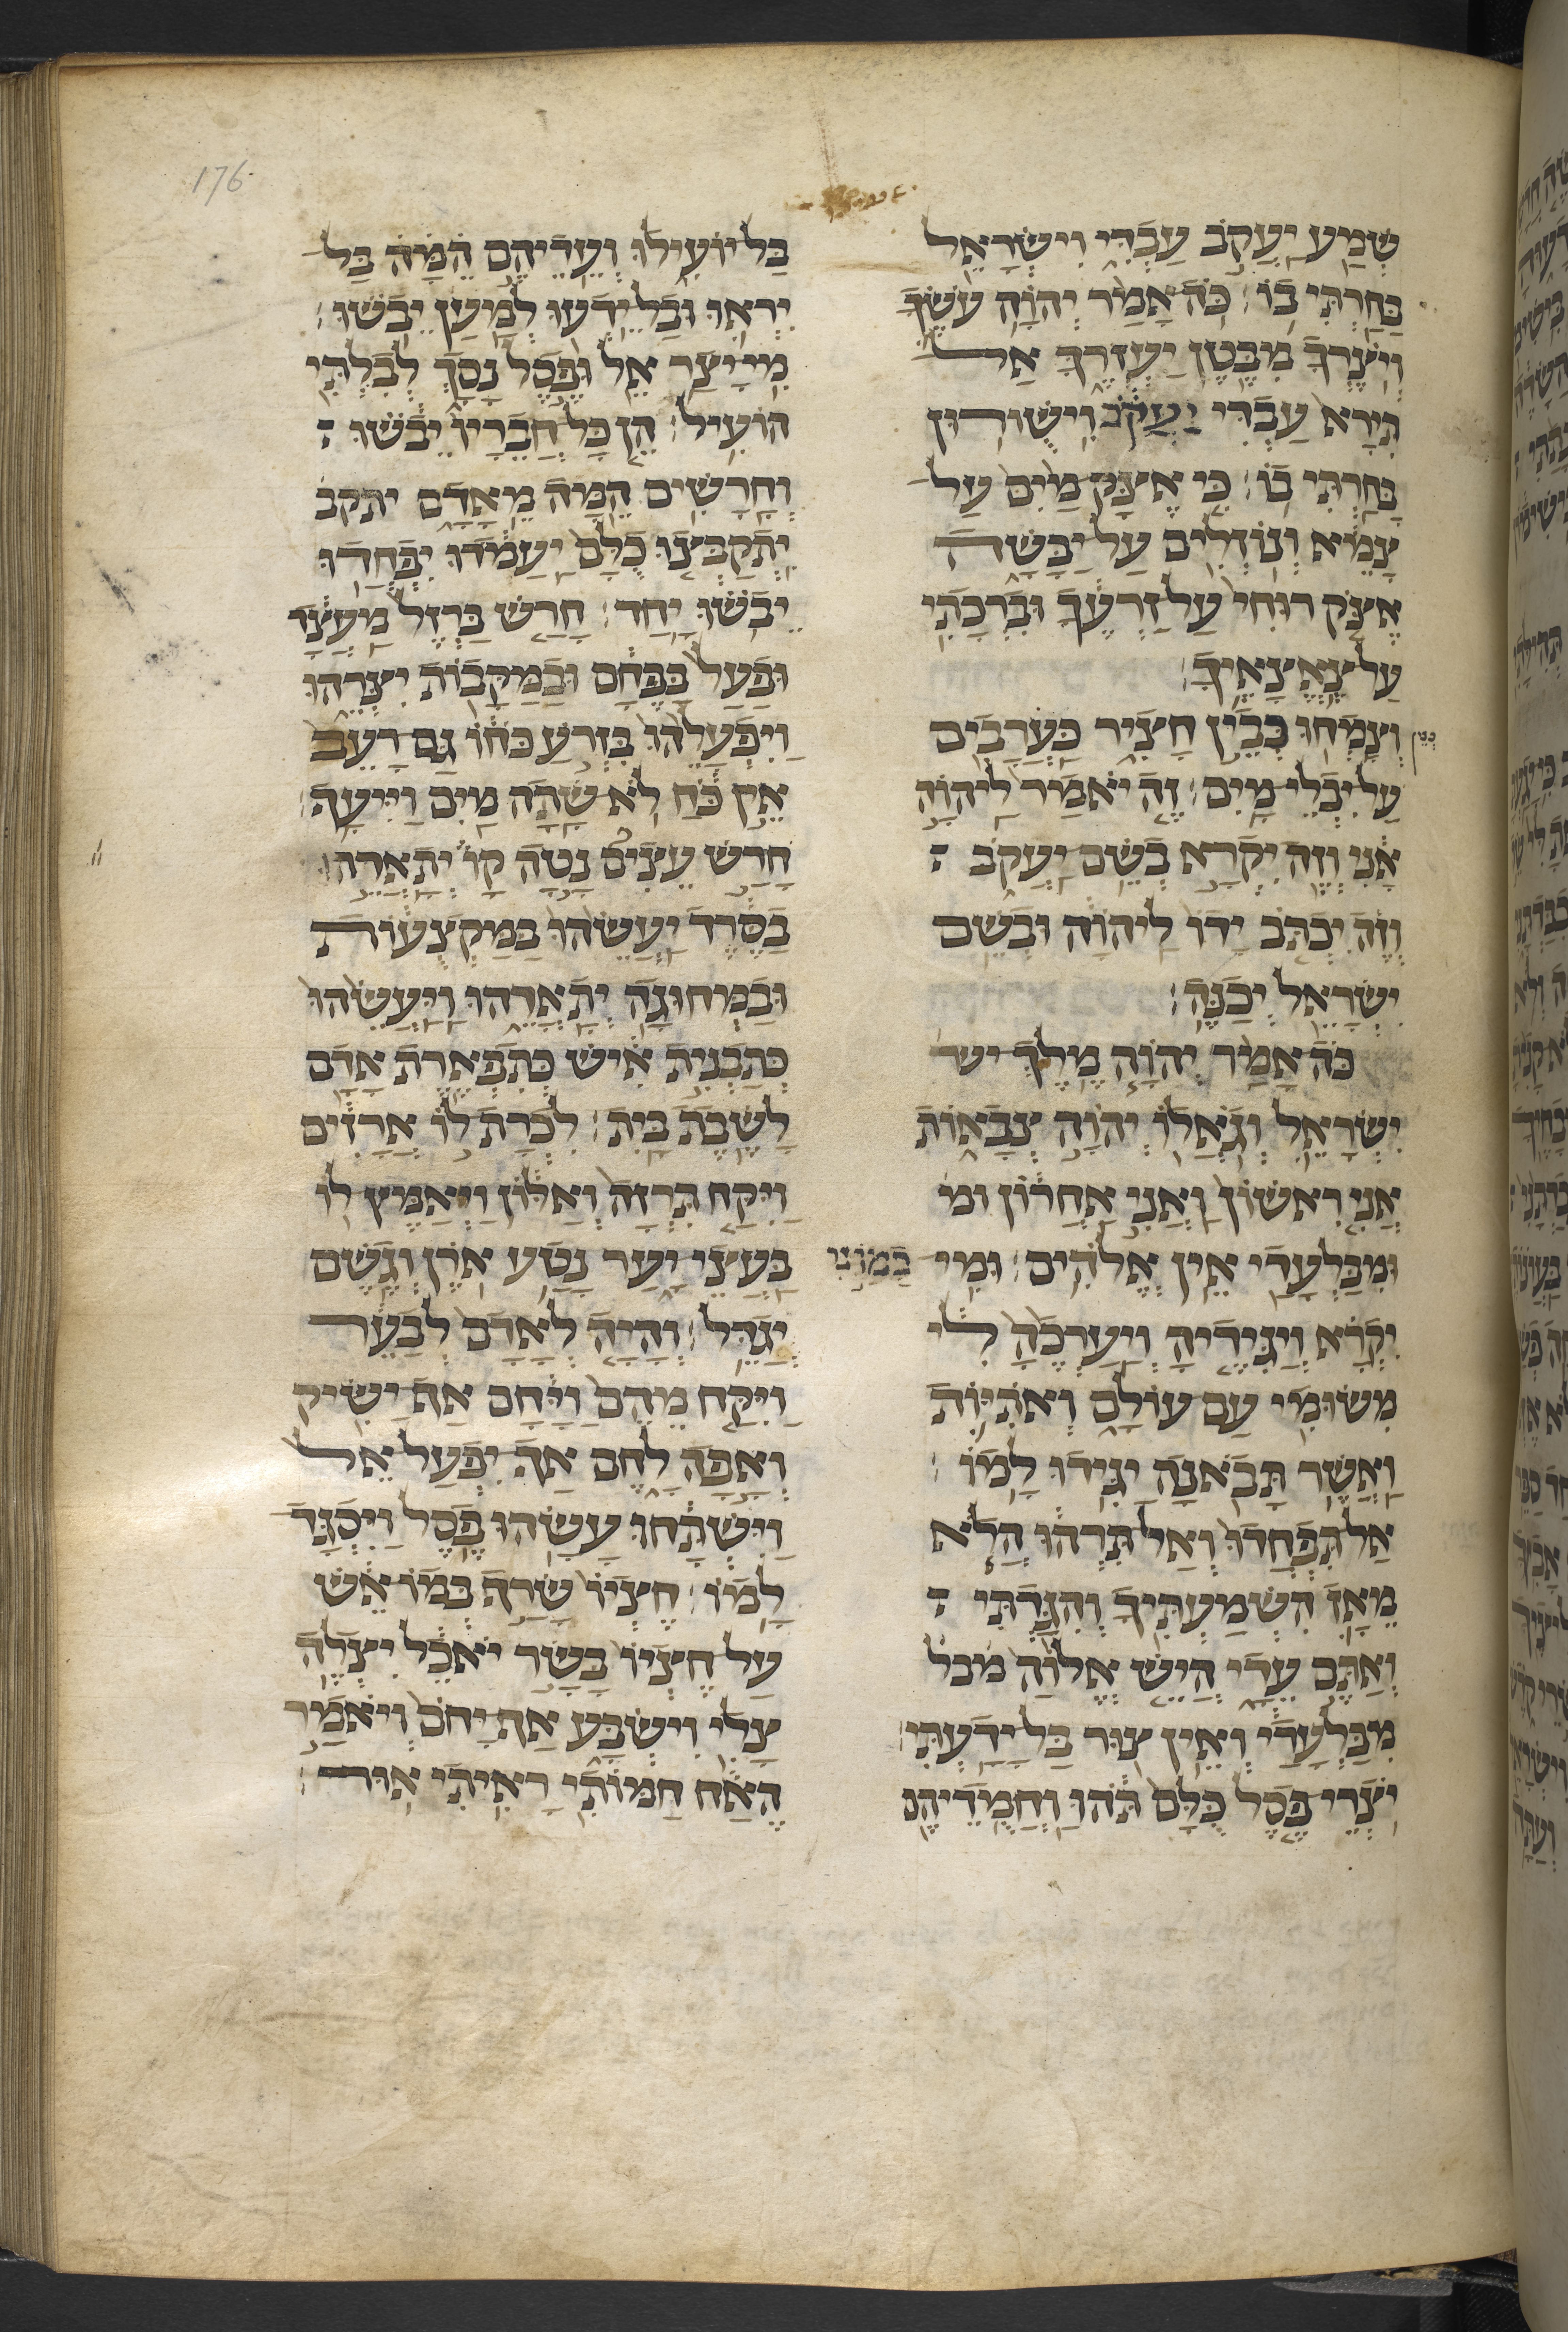 176
שְׁמַע יַעֲקֹב עַבְדִּי וְיִשְׂרָאֵל
בָּחַרְתִּי בוֹ׃ כֹּה אָמַר יְהוָה עֹשֶׂךָ
וְיֹצֶרְךָ מִבֶּטֶן יַעְזְרֶךָּ אַל
תִּירָא עַבְדִּי יַעֲקֹב וִישֻׁורוּן
בָּחַרְתִּי בוֹ׃ כִּי אֶצָּק מַיִם עַל
צָמֵא וְנוֹזְלִים עַל יַבָּשָׁה
אֶצֹּק רוּחִי עַל זַרְעֶךָ וּבִרְכָתִי
עַל צֶאֱצָאֶיךָ׃
וְצָמְחוּ כְּבֵין חָצִיר כַּעֲרָבִים
כבין
עַל יִבְלֵי מָיִם׃ זֶה יֹאמַר לַיהוָה
אָנִי וְזֶה יִקְרָא בְשֵׁם יַעֲקֹב׃
וְזֶה יִכְתֹּב יָדוֹ לַיהוָה וּבְשֵׁם
יִשְׂרָאֵל יְכַנֶּה׃
כֹּה אָמַר יְהוָה מֶלֶךְ יש
יִשְׂרָאֵל וְגֹאֲלוֹ יְהוָה צְבָאוֹת
אֲנִי רִאשׁוֹן וַאֲנִי אַחֲרוֹן ומ
וּמִבַּלְעָדַי אֵין אֱלֹהִים׃ וּמִי
כָמוֹנִי
יִקְרָא וְיַגִּידֶיהָ וְיַעְרְכֶהָ לִי
מִשּׂוּמִי עַם עוֹלָם וְאֹתִיּוֹת
וַאֲשֶׁר תָּבֹאנָה יַגִּידוּ לָמוֹ׃
אַל תִּפְחֲדוּ וְאַל תִּרְהוּ הֲלֹא
מֵאָז הִשְׁמַעְתִּיךָ וְהִגַּדְתִּי׃
וְאַתֶּם עֵדָי הֲיֵשׁ אֱלוֹהַּ מבל
מִבַּלְעָדַי וְאֵין צוּר בַּל יָדָעְתִּי׃
יֹצְרֵי פֶסֶל כֻּלָּם תֹּהוּ וַחֲמֻדֵיהֶם
בַּל יוֹעִילוּ וְעֵדֵיהֶם הֵמָּה בַּל
יִרְאוּ וּבַל יֵדְעוּ לְמַעַן יֵבֹשׁוּ׃
מִי יָצַר אֵל וּפֶסֶל נָסָךְ לְבִלְתִּי
הוֹעִיל׃ הֵן כָּל חֲבֵרָיו יֵבֹשׁוּ׃
וְחָרָשִׁים הֵמָּה מֵאָדָם יתקב
יִתְקַבְּצוּ כֻלָּם יַעֲמֹדוּ יִפְחֲדוּ
יֵבֹשׁוּ יָחַד׃ חָרַשׁ בַּרְזֶל מַעֲצָד
וּפָעַל בַּפֶּחָם וּבַמַּקָּבוֹת יִצְּרֵהוּ
וַיִּפְעָלֵהוּ בִּזְרֹעַ כֹּחוֹ גַּם רָעֵב
אֵין כֹּחַ לֹא שָׁתָה מַיִם וַיִּיעָף׃
חָרַשׁ עֵצִים נָטָה קָו יְתָאֲרֵהוּ
בַשֶּׂרֶד יַעֲשֵׂהוּ בַּמַּקְצֻעוֹת
וּבַמְּחוּגָה יְתָאֳרֵהוּ וַיַּעֲשֵׂהוּ
כְּתַבְנִית אִישׁ כְּתִפְאֶרֶת אָדָם
לָשֶׁבֶת בָּיִת׃ לִכְרָת לוֹ אֲרָזִים
וַיִּקַּח תִּרְזָה וְאַלּוֹן וַיְאַמֶּץ לוֹ
בַּעֲצֵי יָעַר נָטַע אֹרֶן וְגֶשֶׁם
יְגַדֵּל׃ וְהָיָה לְאָדָם לְבָעֵר
וַיִּקַּח מֵהֶם וַיָּחָם אַף יַשִּׂיק
וְאָפָה לָחֶם אַף יִפְעַל אֵל
וַיִּשְׁתָּחוּ עָשָׂהוּ פֶסֶל וַיִּסְגָּד
לָמוֹ׃ חֶצְיוֹ שָׂרַף בְּמוֹ אֵשׁ
עַל חֶצְיוֹ בָּשָׂר יֹאכֵל יִצְלֶה
צָלִי וְיִשְׂבָּע אַף יָחֹם וְיֹאמַר
הֶאָח חַמּוֹתִי רָאִיתִי אוּר׃